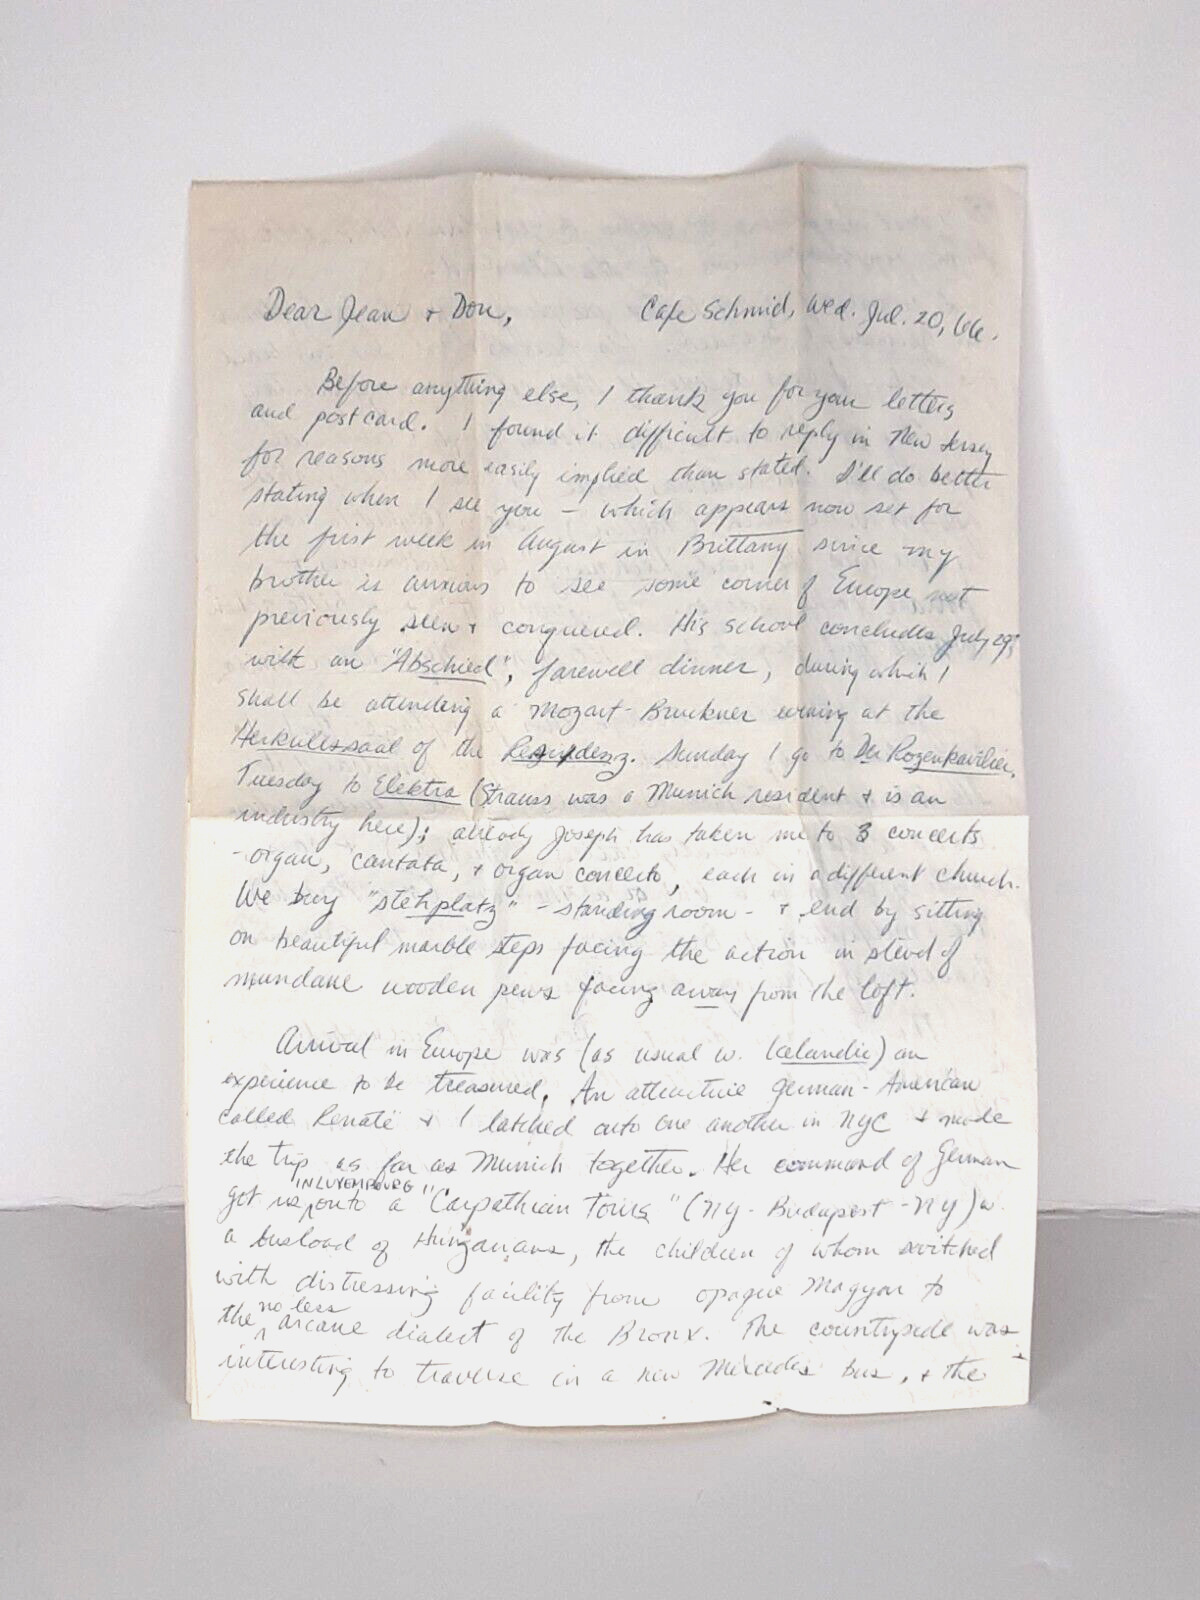 Dear Jean + Don, Cafe Schmid, Wed. Jul. 20, 66.
Before anything else, I thank you for your letters
and postcard. I found it difficult to reply in New Jersey
for reasons more easily implied than stated. I'll do better
stating when I see you – which appears now set for
the first week in August in Brittany since my
brother is anxious to see some corner of Europe not
previously seen + conquered. His school concludes July 29,
with an "Abschied", farewell dinner, during which I
shall be attending a Mozart-Bruckner evening at the
Herkulessaal of the Residenz. Sunday I go to Der Rozenkavilier,
Tuesday to Elektra (Strauss was a Munich resident + is an
industry here); already Joseph has taken me to 3 concerts
-organ, cantata, + organ concerto, each in a different church.
We buy "stehplatz" - standing room - + end by sitting
on beautiful marble steps facing the action instead of
mundane wooden pews facing away from the loft.
Arrival in Europe was (as usual w. Icelandic) an
experience to be treasured. An attractive German-American
called Renate + I latched onto one another in NYC + made
the trip as far as Munich together. Her command of German
got us IN LUXEMBOURG onto a "Carpathian Tours" (NY-Budapest-NY) w.
a busload of Hungarians, the children of whom switched
with distressing facility from opaque Magyar to
the no less arcane dialect of the Bronx. The countryside was
interesting to traverse in a new Mercedes bus, + the